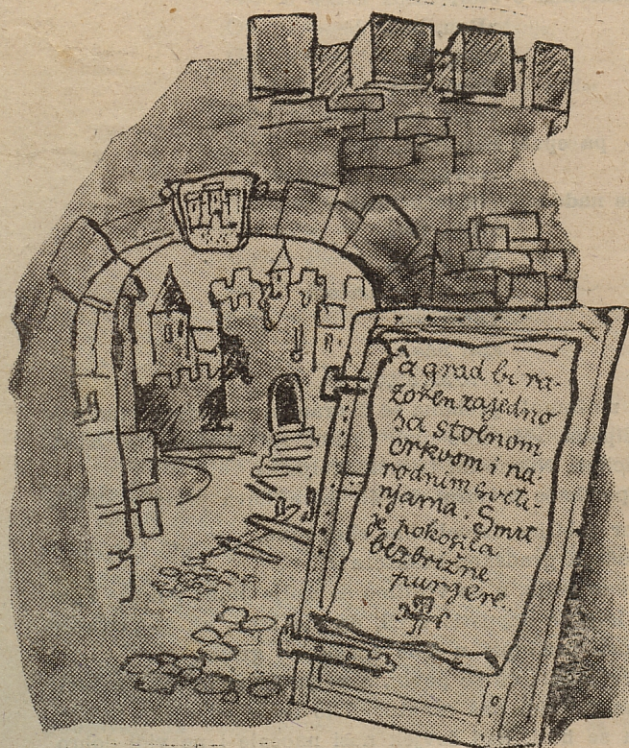 a grad bi ra-
zoren zajedno
sa stolnom
crkvom i na-
rodnim sveti-
njama. Smrt
je pokosila
bezbrižne
purgere.